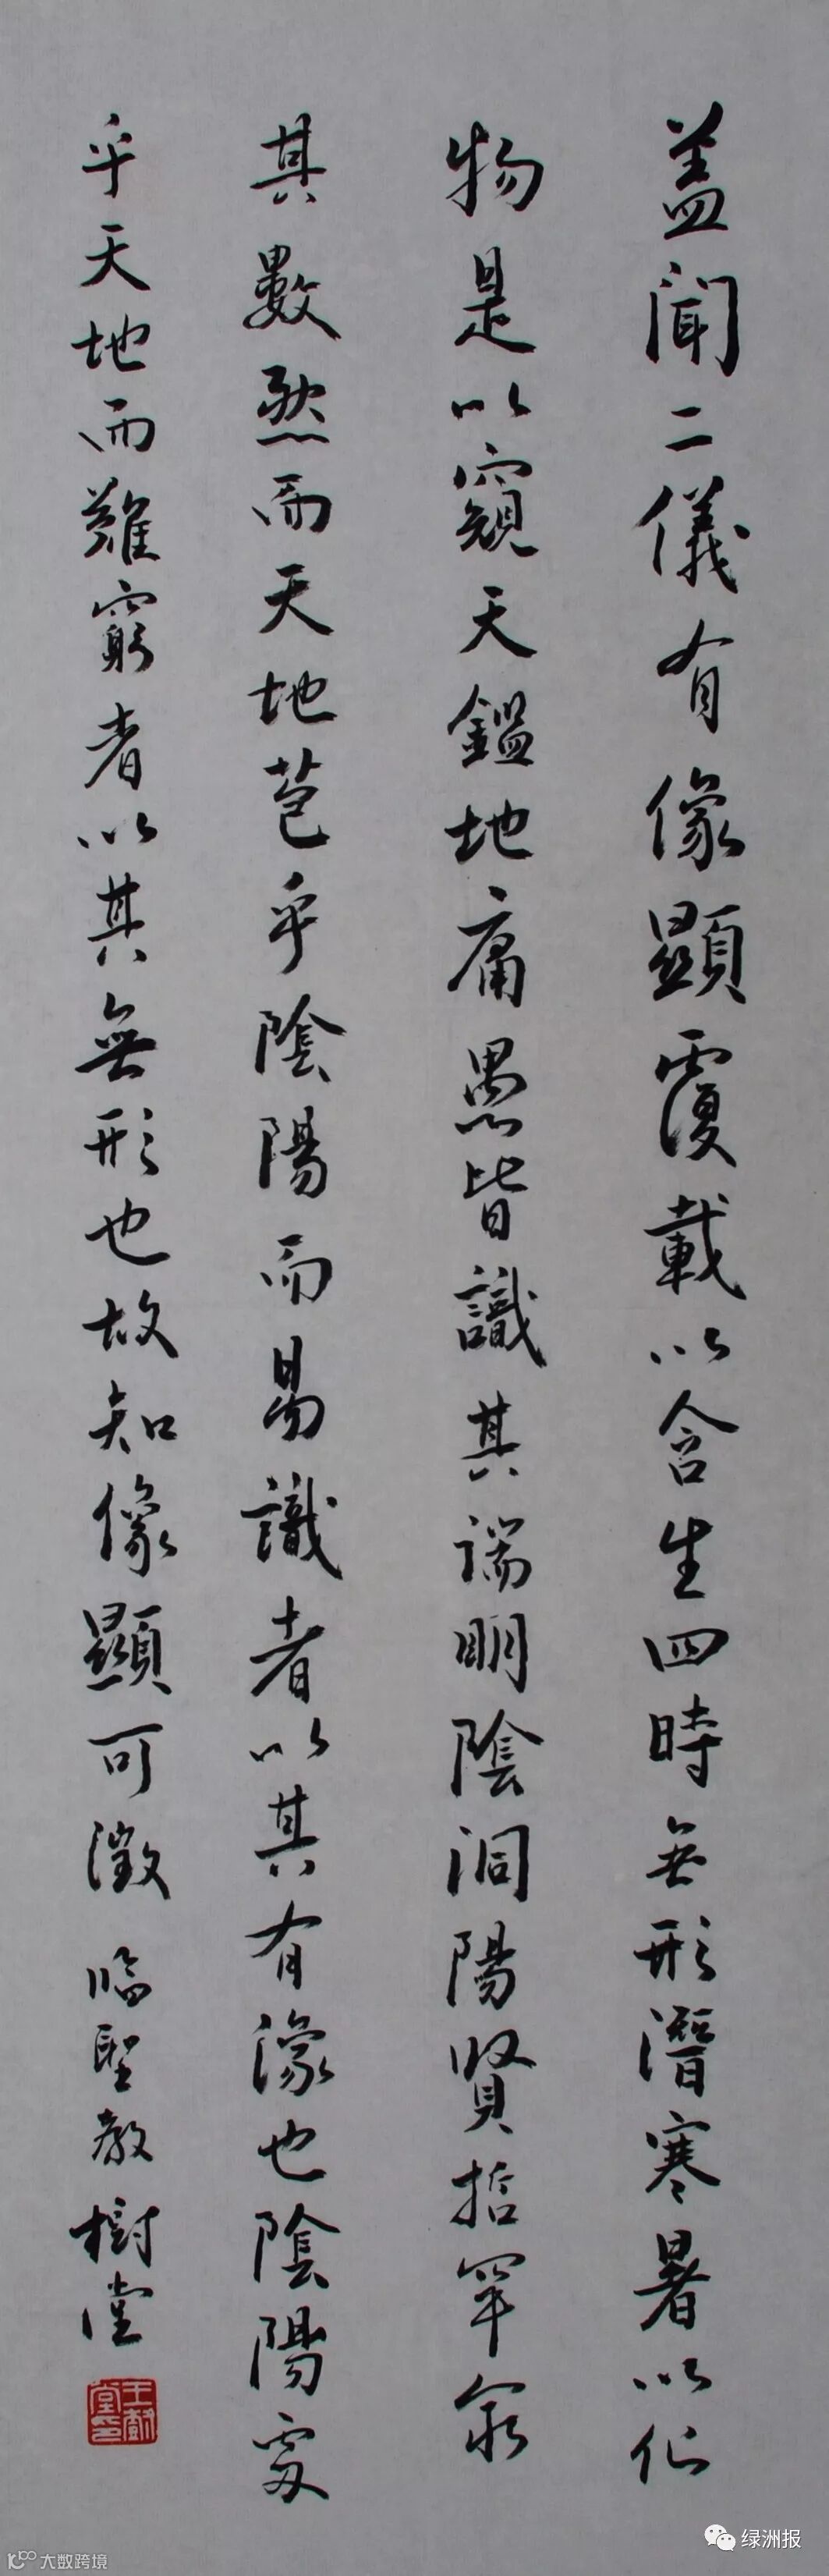 蓋聞二儀有像顯覆載以含生四時無形潛寒暑以化
物是以窺天鑑地庸愚皆識其端明陰洞陽賢哲罕窮
其數然而天地苞乎陰陽而易識者以其有像也陰陽處
乎天地而難窮者以其無形也故知像顯可徵 臨聖教 樹堂
王樹堂印
绿洲报
大数跨境